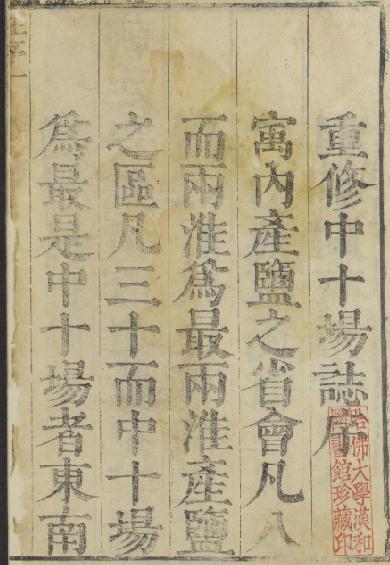 重修中十場誌序
寓內產鹽之省會凡八
而兩淮為最兩淮產鹽
之區凡三十而中十場
為最是中十場者東南
哈佛大學漢和
圖書館珍藏印